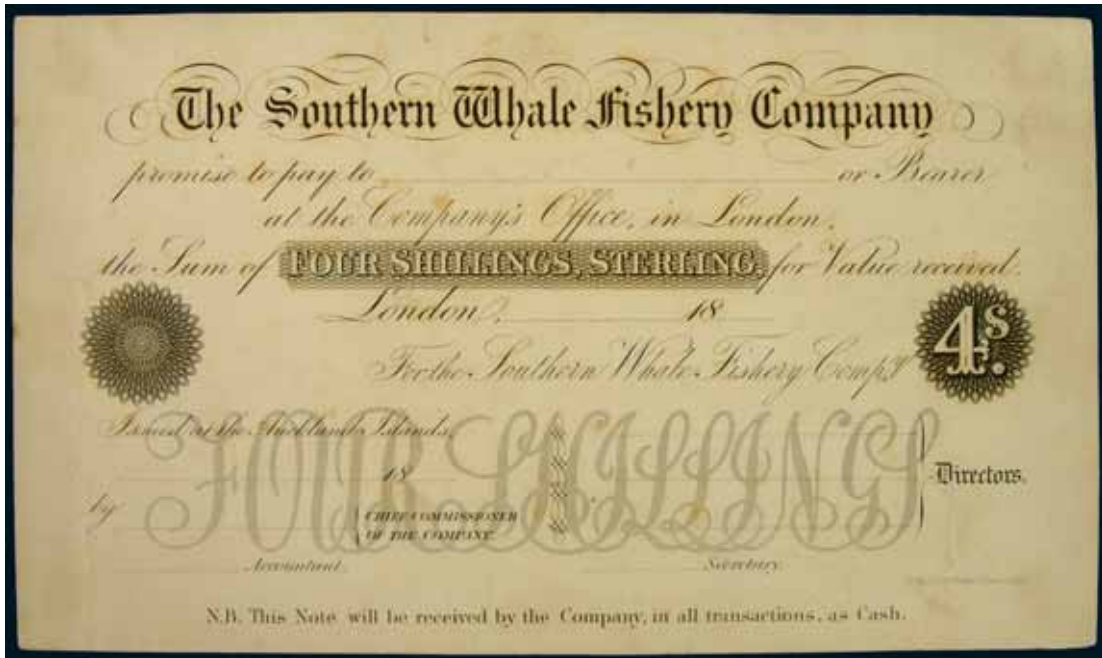 The Southern Whale Fishery Company
promise to pay to or Bearer
at the Company's Office, in London,
the Sum of FOUR SHILLINGS, STERLING, for Value received.
London, 18
For the Southern Whale Fishery Compy.
4s.
Issued at the Auckland Islands,
FOUR SHILLINGS
18
Directors.
by
CHIEF COMMISSIONER
OF THE COMPANY.
Accountant. Secretary.
N.B. This Note will be received by the Company, in all transactions, as Cash.